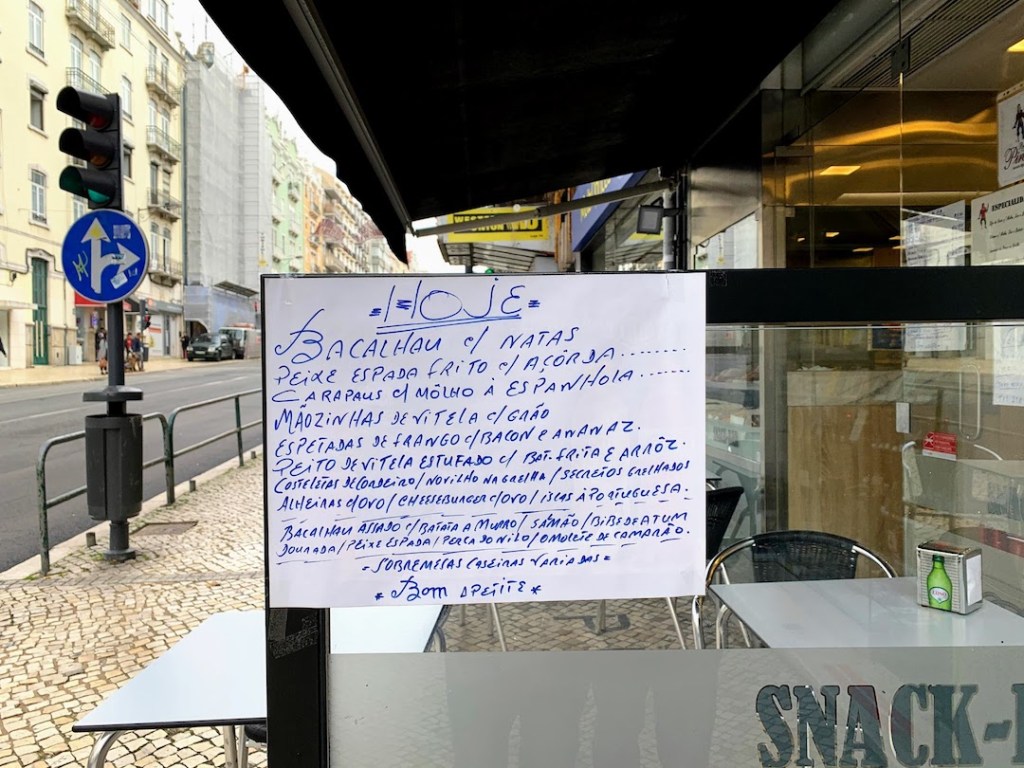 =HOJE=
BACALHAU c/ NATAS
PEIXE ESPADA FRITO c/ AÇÔRDA ........
CARAPAUS c/ MÔLHO À ESPANHOLA .......
MÃOZINHAS DE VITELA c/ GRÃO
ESPETADAS DE FRANGO c/ BACON e ANANAZ.
PEITO DE VITELA ESTUFADO c/ BAT. FRITA E ARRÔZ.
COSTELETAS DE CORDEIRO / NOVILHO NA GRELHA / SECRETOS GRELHADOS
ALHEIRAS c/OVO / CHEESEBURGER c/OVO / ISCAS À PORTUGUESA.
BACALHAU ASSADO c/ BATATA A MURRO / SAMÃO / BIFE DE ATUM
DOURADA / PEIXE ESPADA / PERCA DO NILO / OMOLETE DE CAMARÃO.
= SOBREMESAS CASEIRAS VARIADAS =
* BOM APETITE *
SNACK-